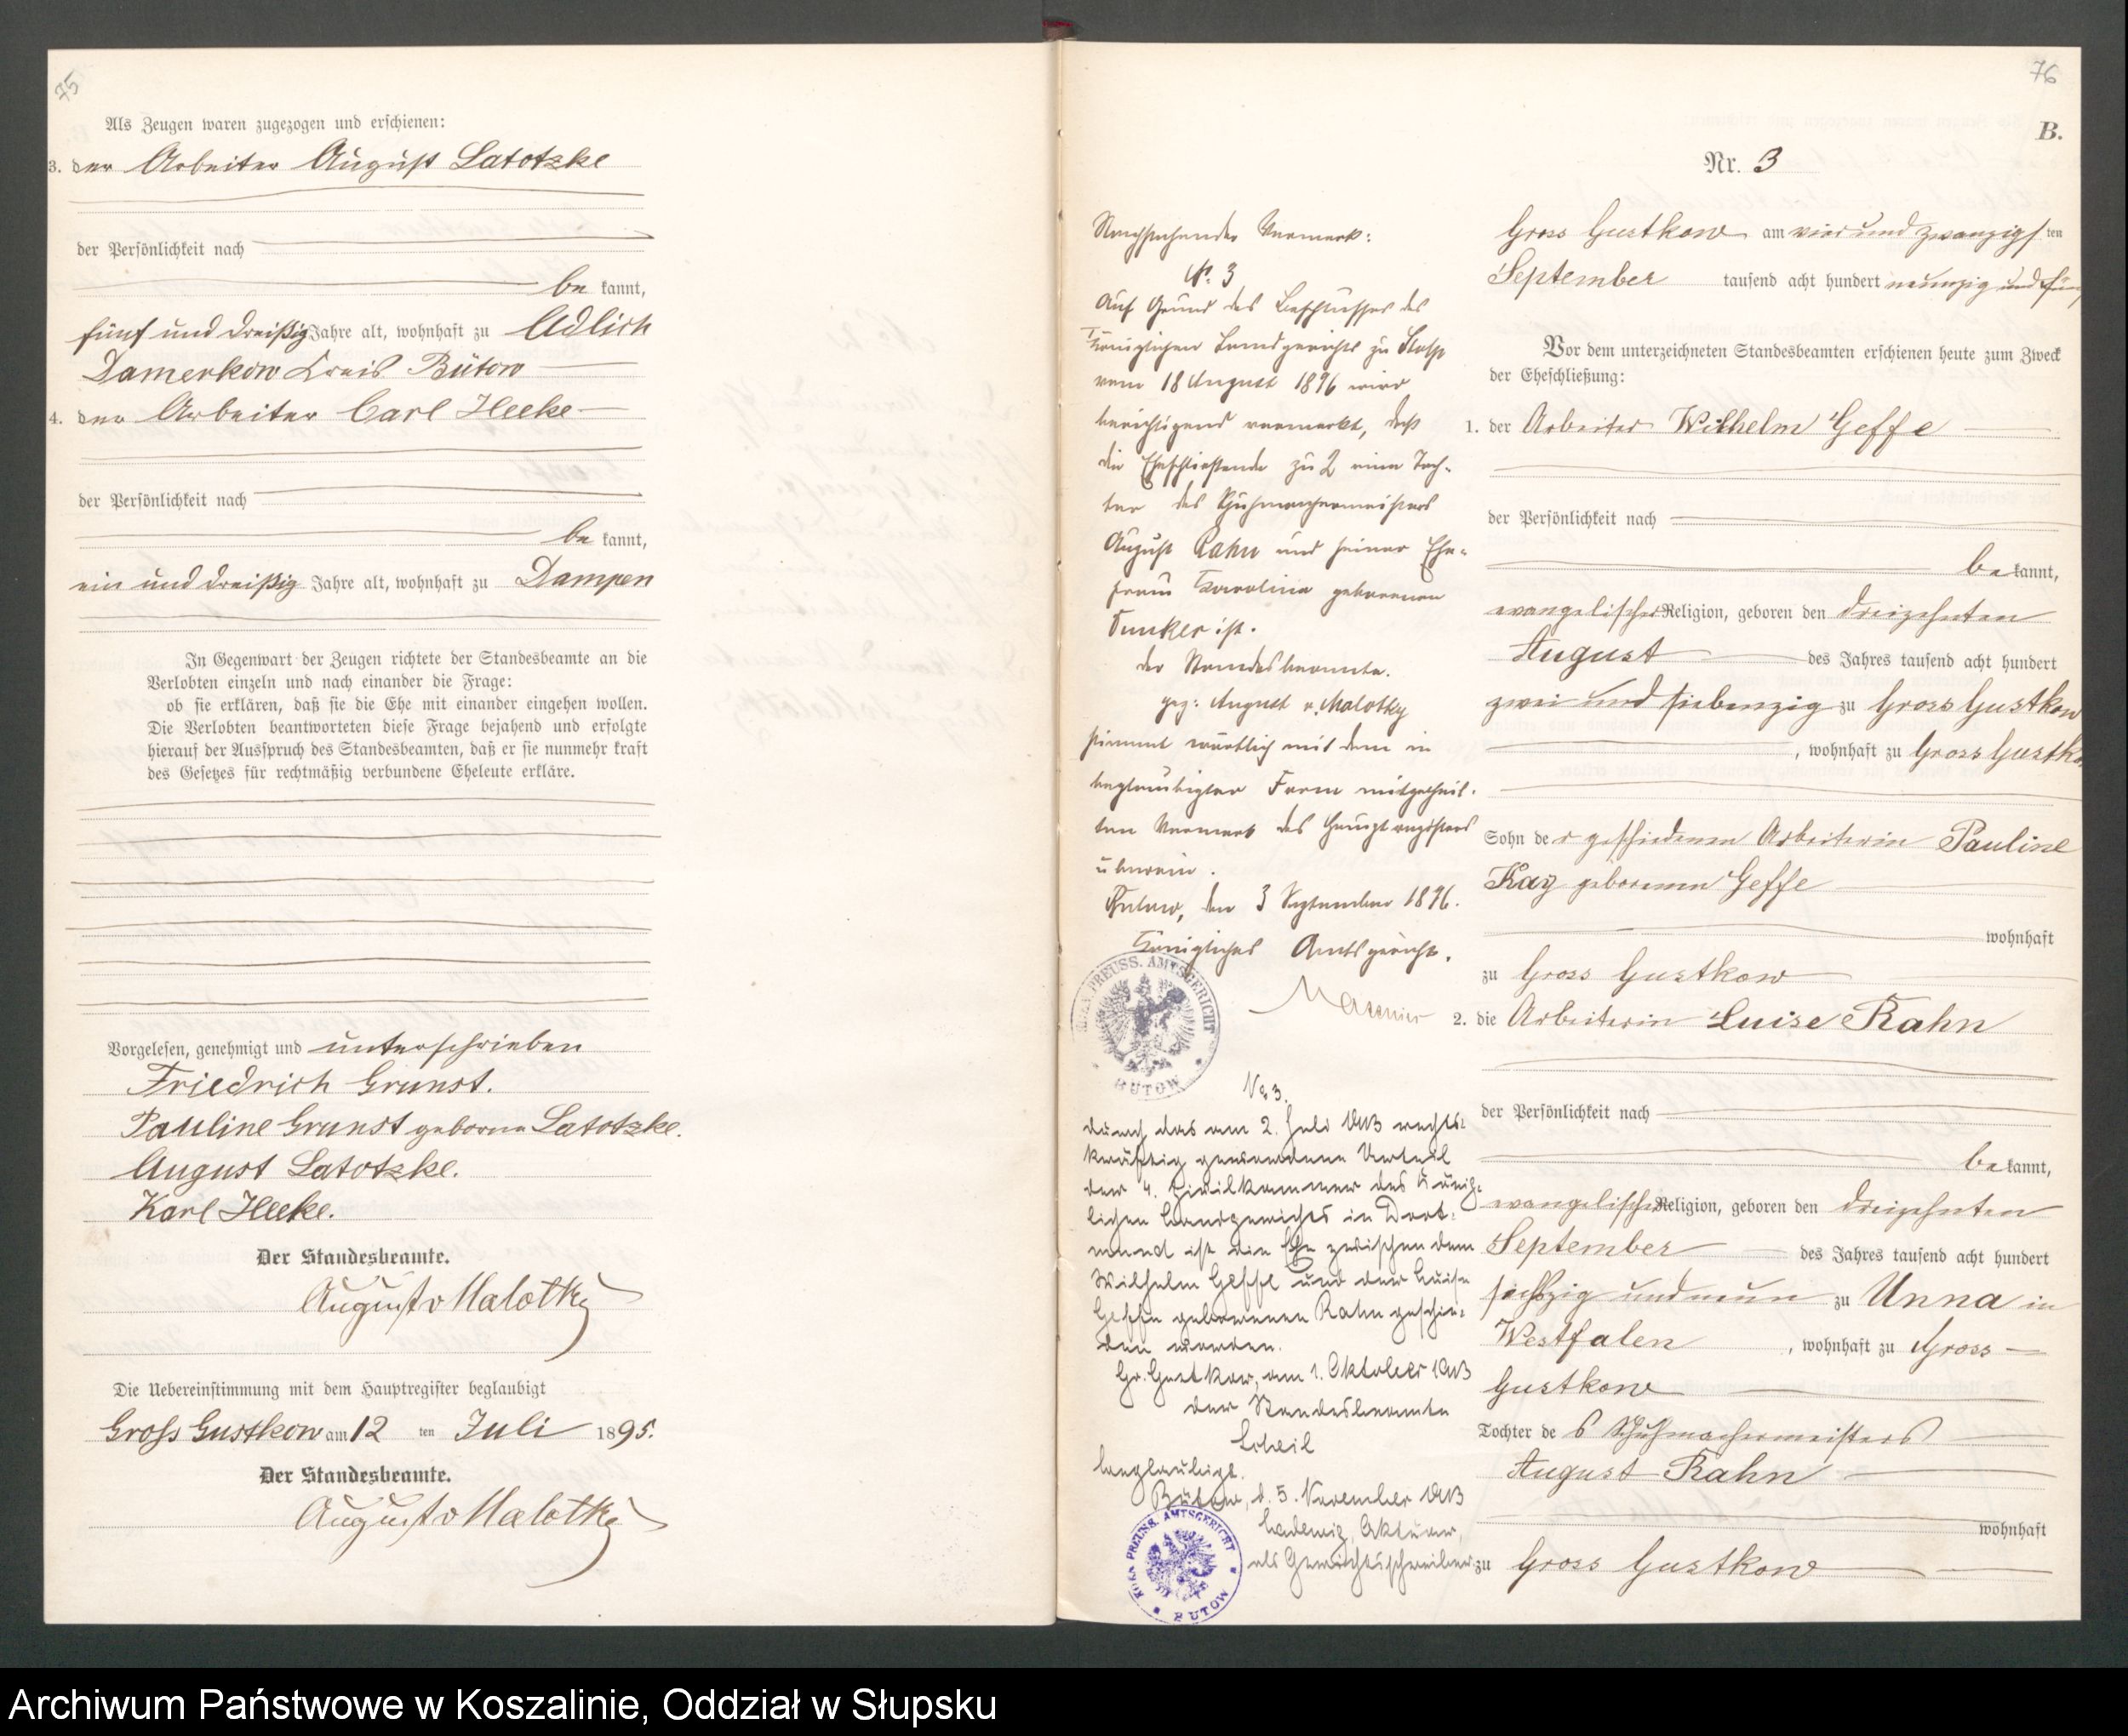 75
Als Zeugen waren zugezogen und erschienen:
3. der Arbeiter August Latotzke
der Persönlichkeit nach
be kannt,
fünf und dreißig Jahre alt, wohnhaft zu Adlich
Damerkow Kreis Bütow
4. der Arbeiter Carl Heeke
der Persönlichkeit nach
be kannt,
ein und dreißig Jahre alt, wohnhaft zu Dampen
In Gegenwart der Zeugen richtete der Standesbeamte an die
Verlobten einzeln und nach einander die Frage:
ob sie erklären, daß sie die Ehe mit einander eingehen wollen.
Die Verlobten beantworteten diese Frage bejahend und erfolgte
hierauf der Ausspruch des Standesbeamten, daß er sie nunmehr kraft
des Gesetzes für rechtmäßig verbundene Eheleute erkläre.
Vorgelesen, genehmigt und unterschrieben
Friedrich Grunst.
Pauline Grunst geborne Latotzke.
August Latotzke.
Karl Heeke.
Der Standesbeamte.
August v Malotky
Die Uebereinstimmung mit dem Hauptregister beglaubigt
Gross Gustkow am 12 ten Juli 1895.
Der Standesbeamte.
August v Malotky
76
B.
Nr. 3
Gross Gustkow am vier und zwanzigs ten
September tausend acht hundert neunzig und fünf
Vor dem unterzeichneten Standesbeamten erschienen heute zum Zweck
der Eheschließung:
1. der Arbeiter Wilhelm Geffe
der Persönlichkeit nach
be kannt,
evangelischer Religion, geboren den dreizehnten
August des Jahres tausend acht hundert
zwei und siebenzig zu Gross Gustkow
, wohnhaft zu Gross Gustko
Sohn der geschiedenen Arbeiterin Pauline
Kay geborenen Geffe
wohnhaft
zu Gross Gustkow
2. die Arbeiterin Luise Rahn
der Persönlichkeit nach
be kannt,
evangelischer Religion, geboren den dreizehnten
September des Jahres tausend acht hundert
sechszig und neun zu Unna in
Westfalen , wohnhaft zu Gross
Gustkow
Tochter des Schuhmachermeisters
August Rahn
wohnhaft
zu Gross Gustkow
Nachstehender Vermerk:
N. 3
Auf Grund des Beschlusses des
Königlichen Landgerichts zu Stolp
vom 18 August 1896 wird
berichtigend vermerkt, daß
die Eheschließende zu 2 eine Toch-
ter des Schuhmachermeisters
August Rahn und seiner Ehe-
frau Karoline geborenen
Dunker ist.
der Standesbeamte.
gez: August v. Malotky
stimmt wörtlich mit dem in
beglaubigter Form mitgetheil-
ten Vermerk des Hauptregisters
überein.
Bütow, den 3 September 1896.
Königliches Amtsgericht.
KÖN. PREUSS. AMTSGERICHT
BÜTOW
No 3.
Durch das am 2. Juli 1903 rechts-
kräftig gewordene Urteil
der 4. Zivilkammer des König-
lichen Landgerichts in Dort-
mund ist die Ehe zwischen dem
Wilhelm Geffe und der Luise
Geffe geborenen Rahn geschie-
den worden.
Gr. Gustkow, am 1. Oktober 1903
Der Standesbeamte
Scheil
beglaubigt.
Bütow, d. 5. November 1903
Aktuar,
als Gerichtsschreiber
KÖN. PREUSS. AMTSGERICHT
BÜTOW
Archiwum Państwowe w Koszalinie, Oddział w Słupsku